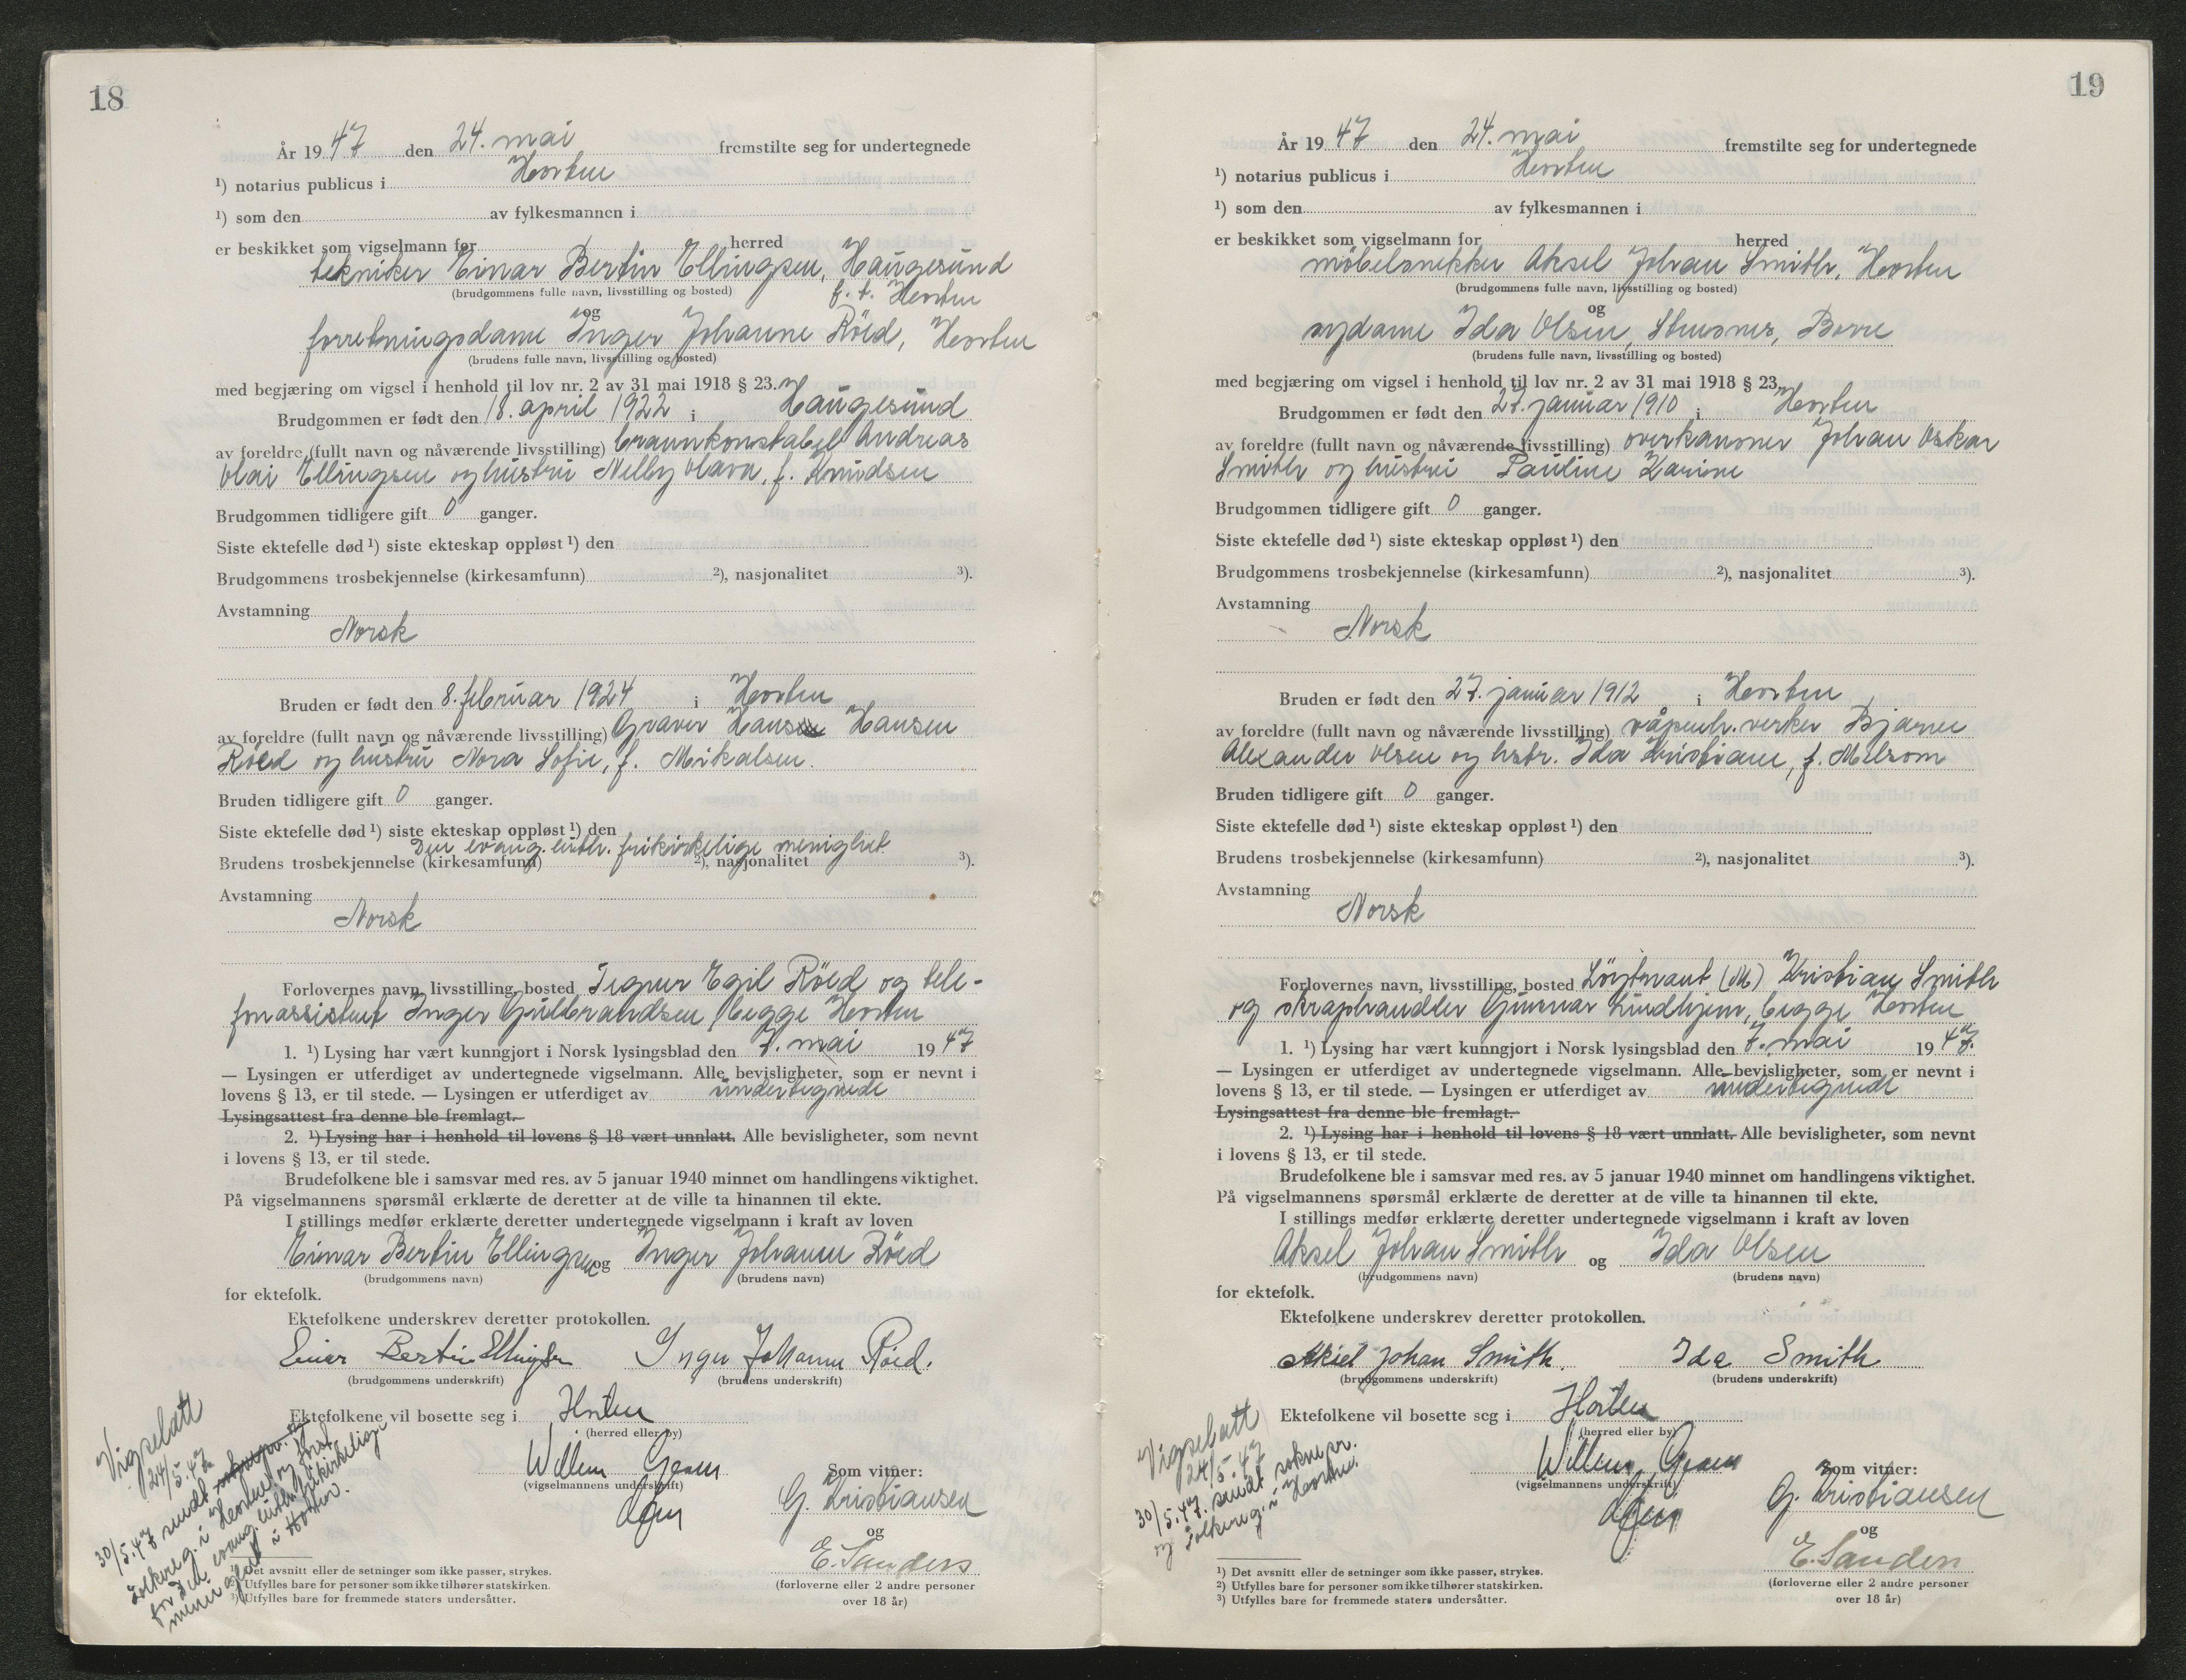 18
År 1947 den 24. mai fremstilte seg for undertegnede
¹) notarius publicus i Horten
¹) som den av fylkesmannen i
er beskikket som vigselmann for herred
tekniker Einar Bertin Ellingsen, Haugesund
(brudgommens fulle navn, livsstilling og bosted) f. t. Horten
og
forretningsdame Inger Johanne Röed, Horten
(brudens fulle navn, livsstilling og bosted)
med begjæring om vigsel i henhold til lov nr. 2 av 31 mai 1918 § 23.
Brudgommen er født den 18. april 1922 i Haugesund
av foreldre (fullt navn og nåværende livsstilling) brannkonstabel Andreas
Olai Ellingsen og hustru Nelly Olava, f. Knudsen
Brudgommen tidligere gift 0 ganger.
Siste ektefelle død ¹) siste ekteskap oppløst ¹) den
Brudgommens trosbekjennelse (kirkesamfunn) ²), nasjonalitet ³).
Avstamning
Norsk
Bruden er født den 8. februar 1924 i Horten
av foreldre (fullt navn og nåværende livsstilling) Graver Hansen Hansen
Röed og hustru Nora Sofie, f. Mikalsen.
Bruden tidligere gift 0 ganger.
Siste ektefelle død ¹) siste ekteskap oppløst ¹) den
Den evang. luth. frikirkelige menighet
Brudens trosbekjennelse (kirkesamfunn) ²), nasjonalitet ³).
Avstamning
Norsk
Forlovernes navn, livsstilling, bosted Tegner Egil Röed og tele-
fonassistent Inger Gulbrandsen, begge Horten
1. ¹) Lysing har vært kunngjort i Norsk lysingsblad den 7. mai 1947
— Lysingen er utferdiget av undertegnede vigselmann. Alle bevisligheter, som er nevnt i
lovens § 13, er til stede. — Lysingen er utferdiget av undertegnede
Lysingsattest fra denne ble fremlagt.
2. ¹) Lysing har i henhold til lovens § 18 vært unnlatt. Alle bevisligheter, som nevnt
i lovens § 13, er til stede.
Brudefolkene ble i samsvar med res. av 5 januar 1940 minnet om handlingens viktighet.
På vigselmannens spørsmål erklærte de deretter at de ville ta hinannen til ekte.
I stillings medfør erklærte deretter undertegnede vigselmann i kraft av loven
Einar Bertin Ellingsen og Inger Johanne Röed
(brudgommens navn) (brudens navn)
for ektefolk.
Ektefolkene underskrev deretter protokollen.
Einar Bertin Ellingsen Inger Johanne Röed.
(brudgommens underskrift) (brudens underskrift)
Ektefolkene vil bosette seg i Horten
(herred eller by)
Som vitner:
(vigselmannens underskrift)
G. Kristiansen
og
E. Sanders
(forloverne eller 2 andre personer
over 18 år)
Vigselatt
24/5.47
30/5.47 sendt sokneprr. og
folkereg. i Horten og forst.
for Den evang. luth. frikirkelige
menighet i Horten.
¹) Det avsnitt eller de setninger som ikke passer, strykes.
²) Utfylles bare for personer som ikke tilhører statskirken.
³) Utfylles bare for fremmede staters undersåtter.
19
År 1947 den 24. mai fremstilte seg for undertegnede
¹) notarius publicus i Horten
¹) som den av fylkesmannen i
er beskikket som vigselmann for herred
møbelsnekker Aksel Johan Smith, Horten
(brudgommens fulle navn, livsstilling og bosted)
og
sydame Ida Olsen, Stensnes, Borre
(brudens fulle navn, livsstilling og bosted)
med begjæring om vigsel i henhold til lov nr. 2 av 31 mai 1918 § 23.
Brudgommen er født den 27. januar 1910 i Horten
av foreldre (fullt navn og nåværende livsstilling) overkanoner Johan Oskar
Smith og hustru Pauline Karine
Brudgommen tidligere gift 0 ganger.
Siste ektefelle død ¹) siste ekteskap oppløst ¹) den
Brudgommens trosbekjennelse (kirkesamfunn) ²), nasjonalitet ³).
Avstamning
Norsk
Bruden er født den 27. januar 1912 i Horten
av foreldre (fullt navn og nåværende livsstilling) våpenh.verker Bjarne
Alexander Olsen og hstr. Ida Kristiane, f. Melsom
Bruden tidligere gift 0 ganger.
Siste ektefelle død ¹) siste ekteskap oppløst ¹) den
Brudens trosbekjennelse (kirkesamfunn) ²), nasjonalitet ³).
Avstamning
Norsk
Forlovernes navn, livsstilling, bosted Löytnant (M) Kristian Smith
og skraphandler Gunnar Lindhjem, begge Horten
1. ¹) Lysing har vært kunngjort i Norsk lysingsblad den 7. mai 1947.
— Lysingen er utferdiget av undertegnede vigselmann. Alle bevisligheter, som er nevnt i
lovens § 13, er til stede. — Lysingen er utferdiget av undertegnede
Lysingsattest fra denne ble fremlagt.
2. ¹) Lysing har i henhold til lovens § 18 vært unnlatt. Alle bevisligheter, som nevnt
i lovens § 13, er til stede.
Brudefolkene ble i samsvar med res. av 5 januar 1940 minnet om handlingens viktighet.
På vigselmannens spørsmål erklærte de deretter at de ville ta hinannen til ekte.
I stillings medfør erklærte deretter undertegnede vigselmann i kraft av loven
Aksel Johan Smith og Ida Olsen
(brudgommens navn) (brudens navn)
for ektefolk.
Ektefolkene underskrev deretter protokollen.
Aksel Johan Smith. Ida Smith
(brudgommens underskrift) (brudens underskrift)
Ektefolkene vil bosette seg i Horten
(herred eller by)
Som vitner:
(vigselmannens underskrift)
G. Kristiansen
og
E. Sanders
(forloverne eller 2 andre personer
over 18 år)
Vigselatt
24/5.47
30/5.47. sendt soknepr.
og folkereg. i Horten.
¹) Det avsnitt eller de setninger som ikke passer, strykes.
²) Utfylles bare for personer som ikke tilhører statskirken.
³) Utfylles bare for fremmede staters undersåtter.